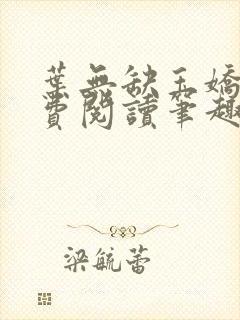 葉無缺玉嬌
費閱讀筆趣
梁毓蕾